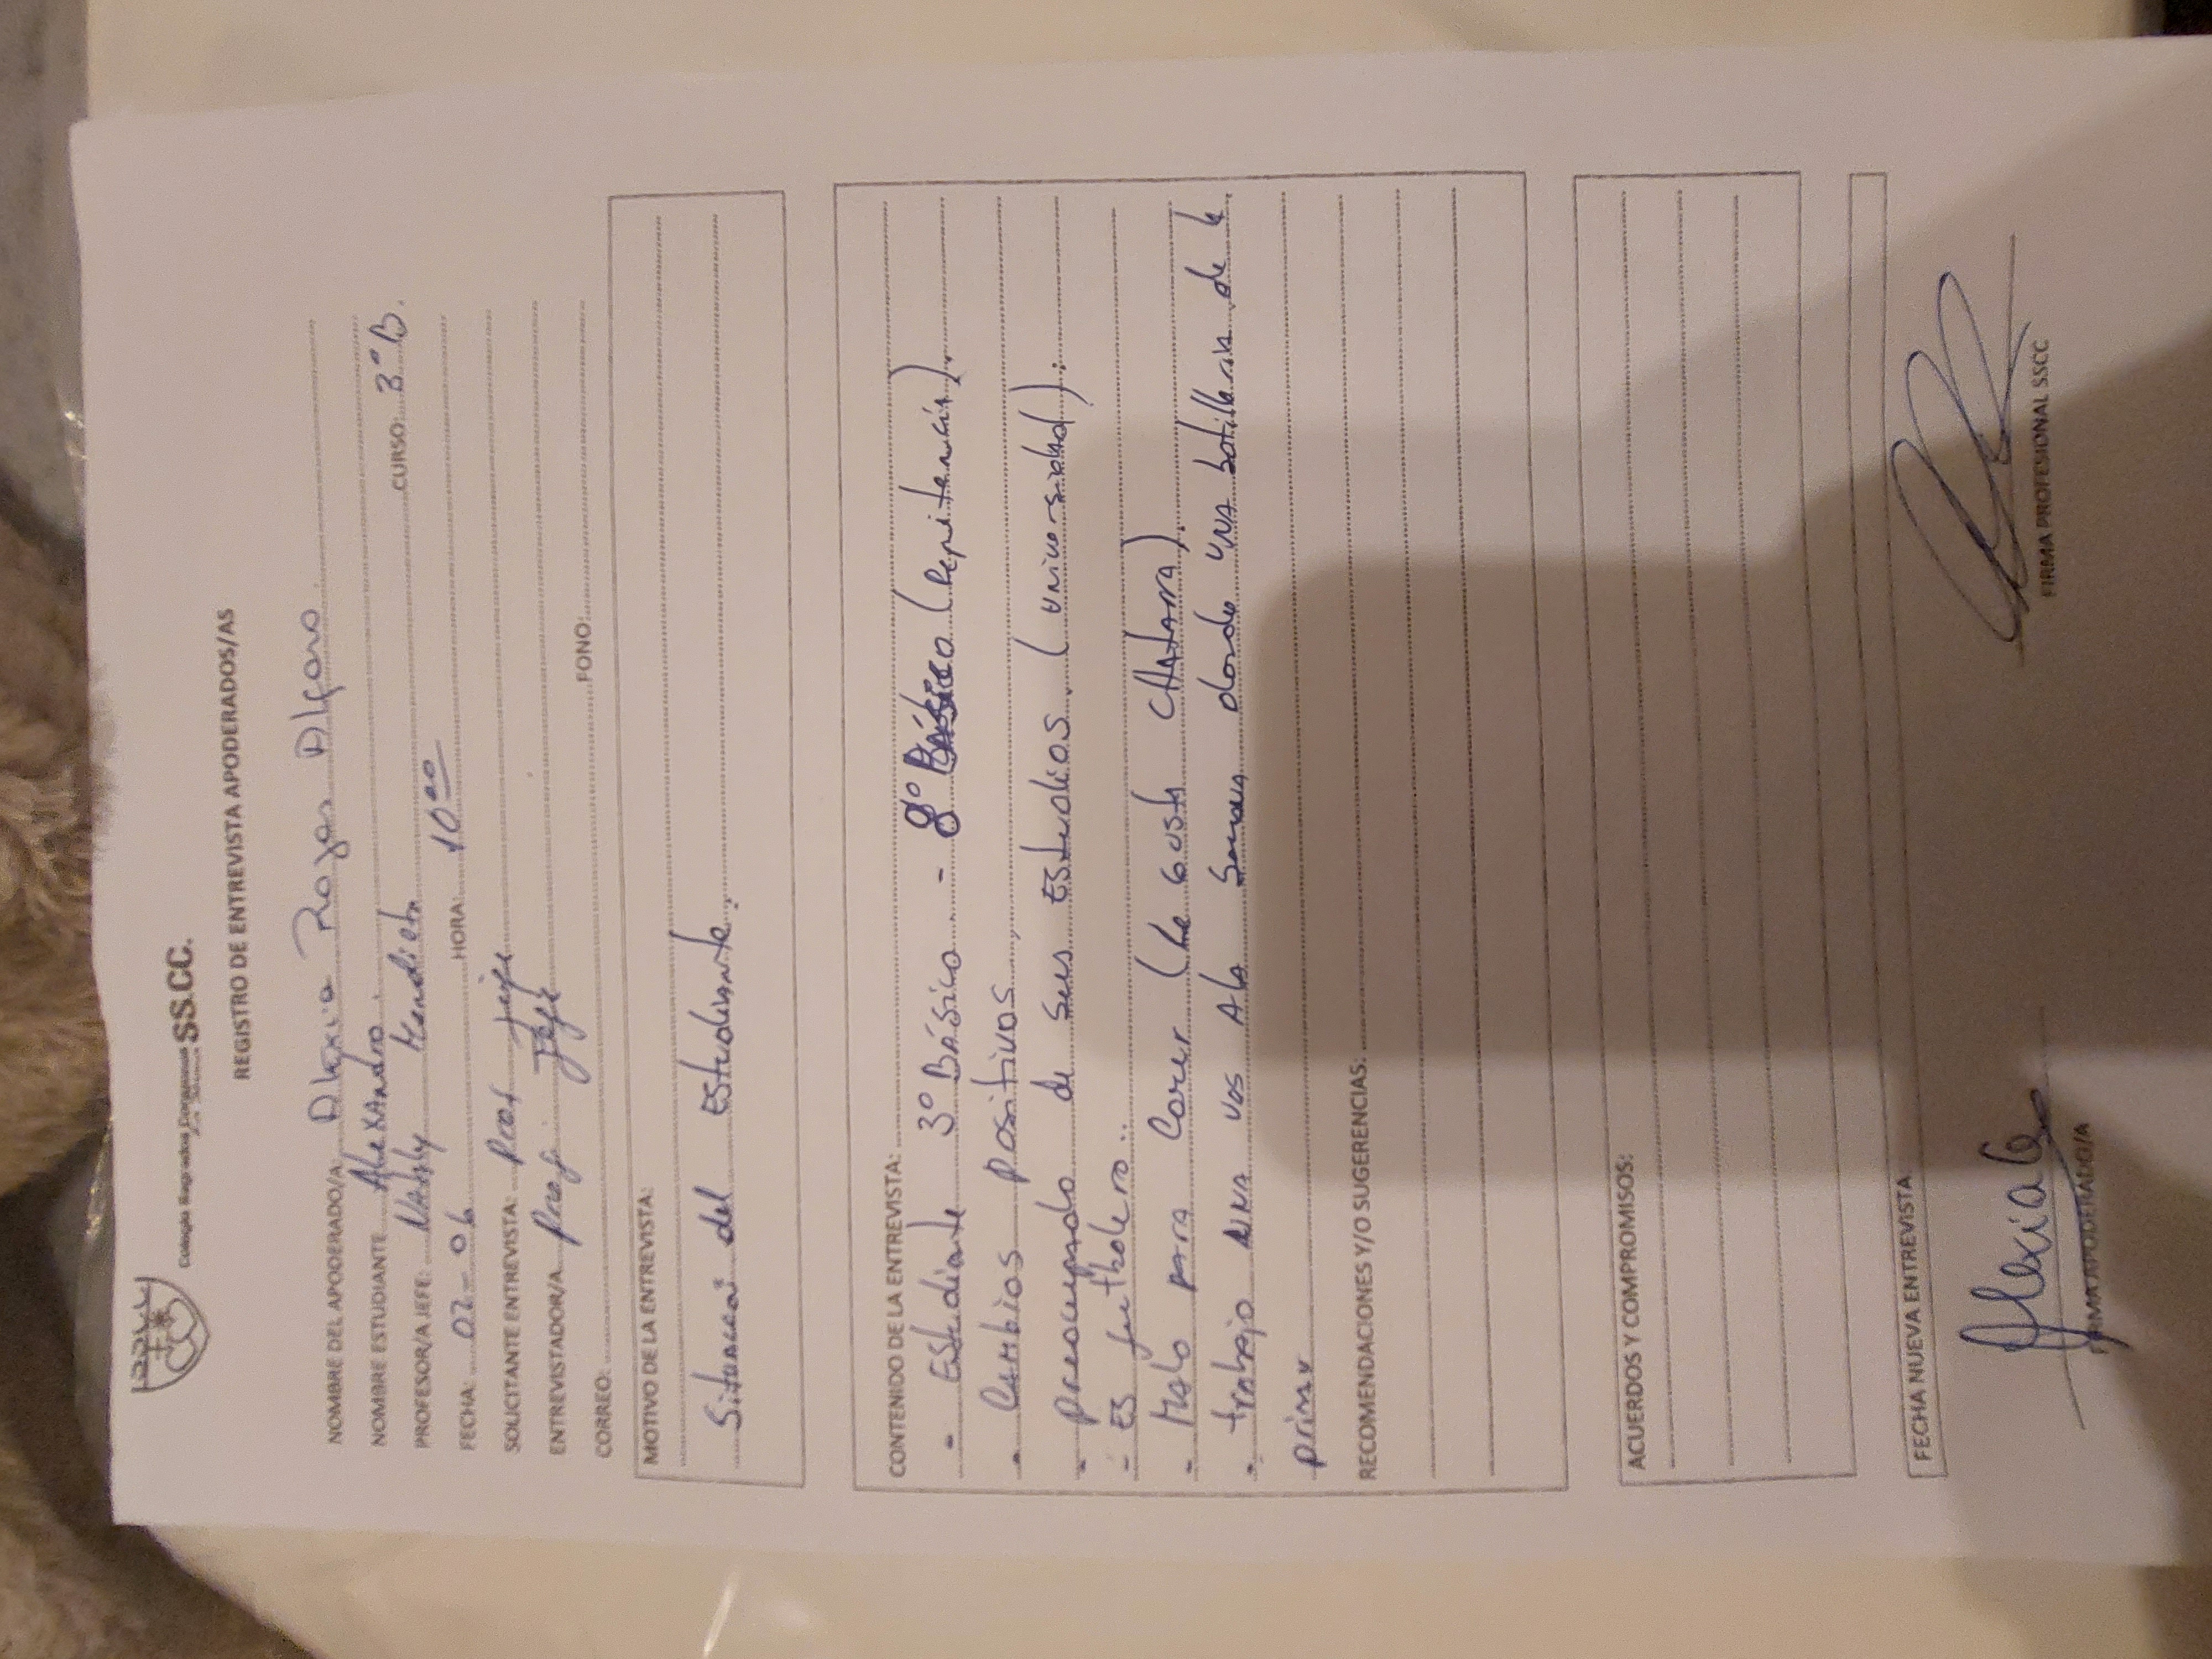 Colegio Sagrados Corazones SS.CC.
REGISTRO DE ENTREVISTA APODERADOS/AS
NOMBRE DEL APODERADO/A: Alexia Rojas Alfaro
NOMBRE ESTUDIANTE Alexandro. CURSO: 3°B.
PROFESOR/A JEFE: Nataly Mendieta
FECHA: 02-06 HORA: 10:00
SOLICITANTE ENTREVISTA: Prof jefe
ENTREVISTADOR/A Prof. Jefe
CORREO: FONO:
MOTIVO DE LA ENTREVISTA:
Situación del Estudiante.
CONTENIDO DE LA ENTREVISTA:
- Estudiante 3° Básico - 8° Básico (Repitencia).
- Cambios positivos
- preocupado de sus Estudios. (universidad).
- Es futbolero..
- Malo para Comer (le gusta chatarra).
- trabajo una vos Ala Semana donde una botilleria de la
prima
RECOMENDACIONES Y/O SUGERENCIAS:
ACUERDOS Y COMPROMISOS:
FECHA NUEVA ENTREVISTA
Alexia
FIRMA APODERADO/A FIRMA PROFESIONAL SSCC